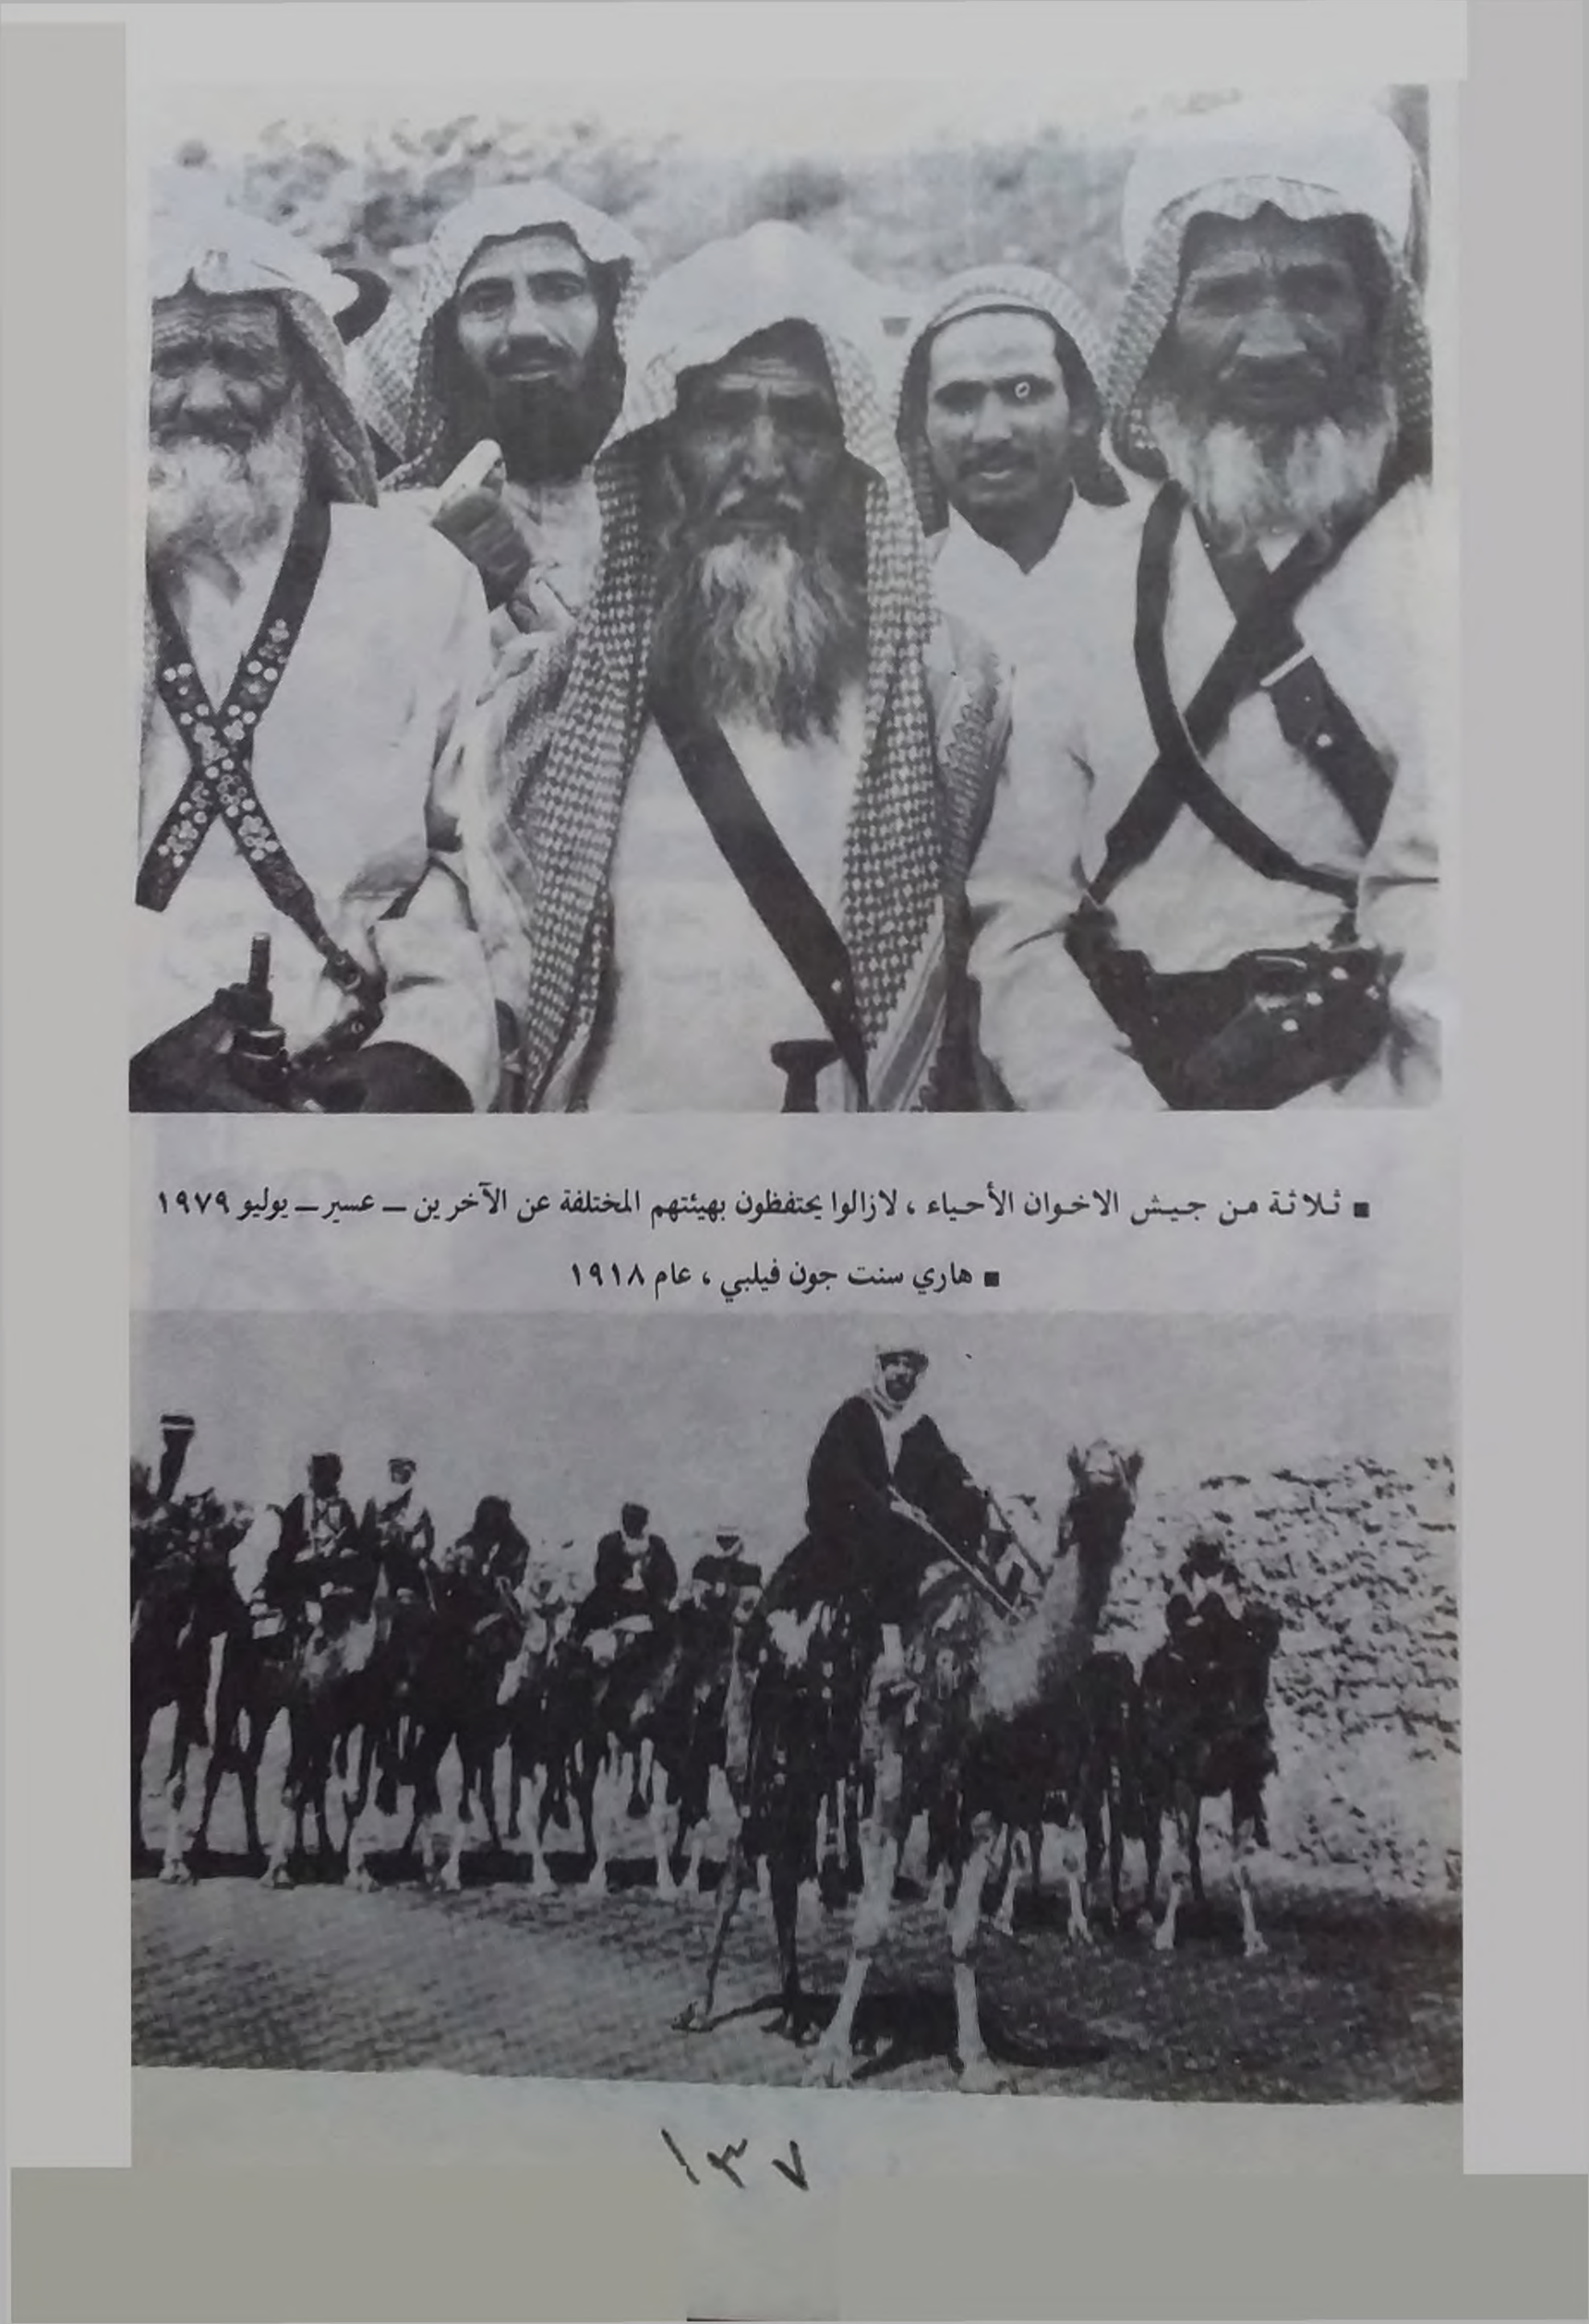 ■ ثلاثة من جيش الاخوان الأحياء ، لازالوا يحتفظون بهيئتهم المختلفة عن الآخرين ــ عسير ــ يوليو ١٩٧٩
■ هاري سنت جون فيلبي ، عام ١٩١٨
١٣٧